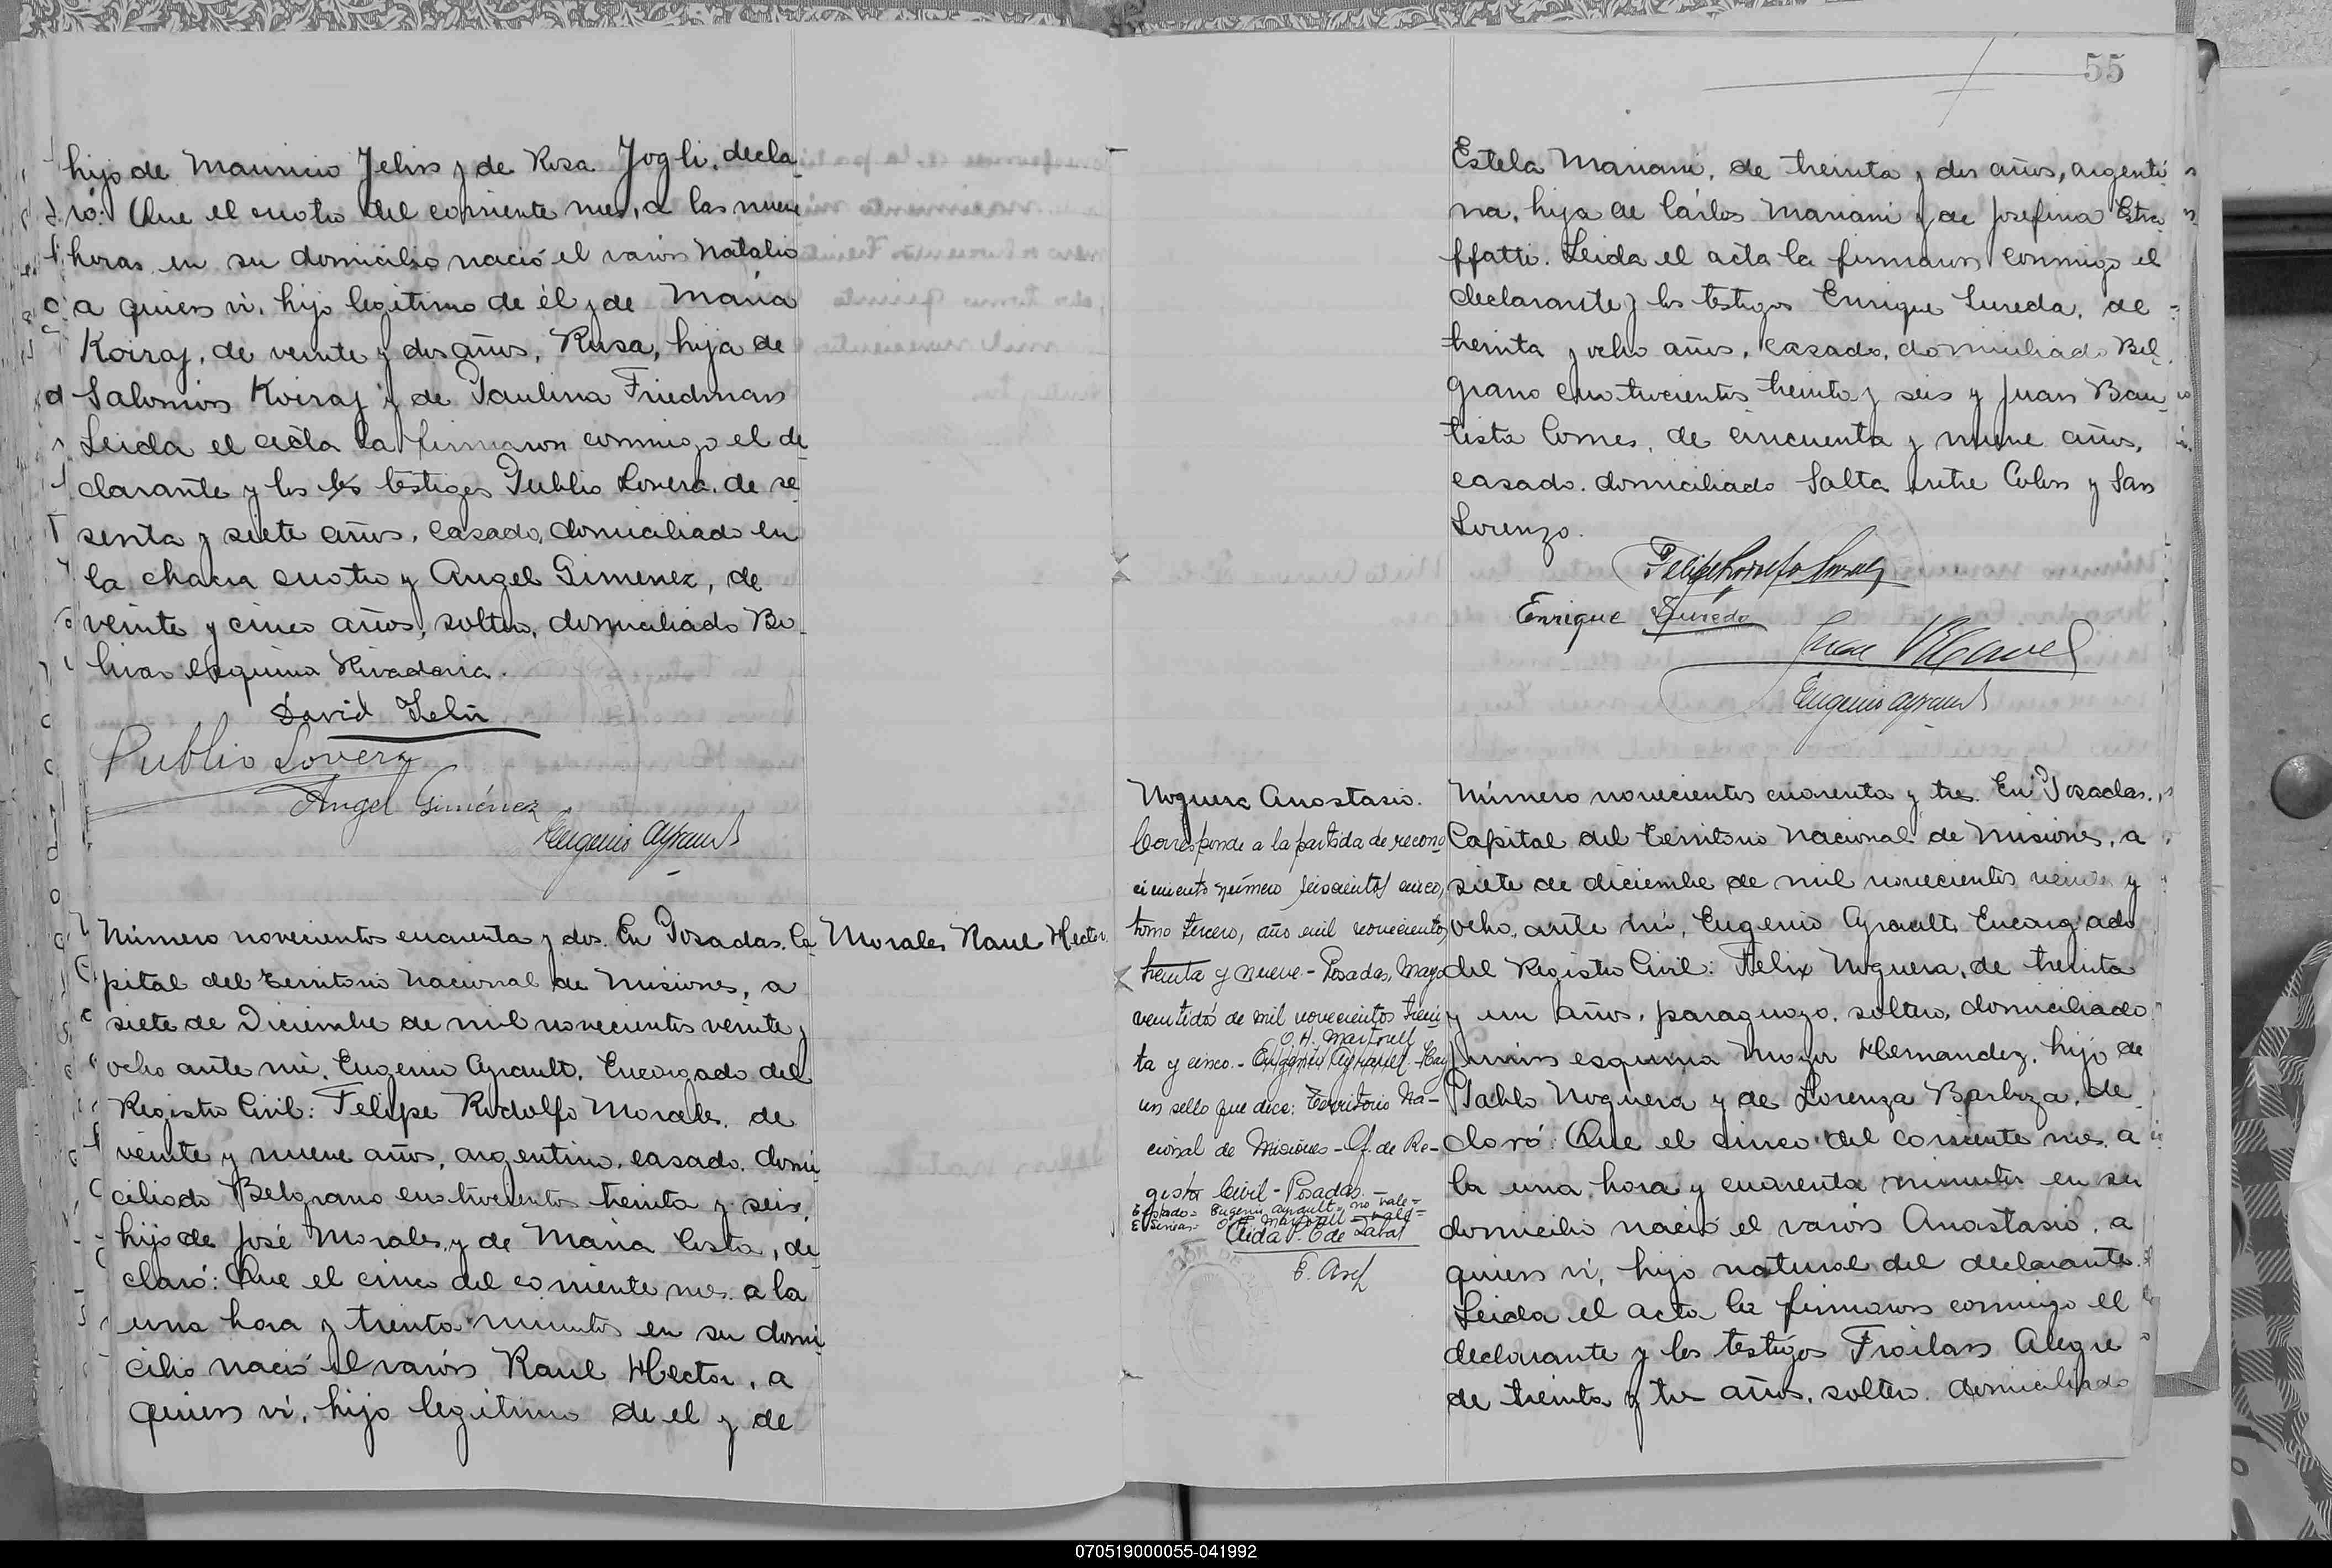 hijo de Mauricio Jelin y de Rosa Jogli, decla
ró: Que el cuatro del corriente mes, a las nueve
horas en su domicilio nació el varón Natalio
a quien vi, hijo legítimo de él y de María
Koiraj, de veinte y dos años, Rusa, hija de
Salomón Koiraj y de Paulina Friedman
Leida el acta la firmaron conmigo el de
clarante y los testigos Publio Lovera, de se
senta y siete años, casado, domiciliado en
la chacra cuatro y Angel Gimenez, de
veinte y cinco años, soltero, domiciliado Bo
livar esquina Rivadavia.
David Jelin
Publio Lovera
Angel Giménez
Eugenio Ayrault
Número novecientos cuarenta y dos. En Posadas, Ca
pital del Territorio Nacional de Misiones, a
siete de Diciembre de mil novecientos veinte y
ocho ante mi, Eugenio Ayrault, Encargado del
Registro Civil: Felipe Rodolfo Morales, de
veinte y nueve años, argentino, casado, domi
ciliado Belgrano cuatrocientos treinta y seis,
hijo de José Morales y de María Costa, de
claró: Que el cinco del corriente mes a la
una hora y treinta minutos en su domi
cilio nació el varón Raul Hector, a
quien vi, hijo legítimo de el y de
Morales Raul Hector
55
Estela Mariani, de treinta y dos años, argenti
na, hija de Cárlos Mariani y de Josefina Estra
ffatti. Leida el acta la firmaron conmigo el
declarante y los testigos Enrique Sureda, de
treinta y ocho años, casado, domiciliado Bel
grano cuatrocientos treinta y seis y Juan Bau
tista Comes, de cincuenta y nueve años,
casado, domiciliado Salta entre Colon y San
Lorenzo.
Felipe Rodolfo Morales
Enrique Sureda
Juan B
Eugenio Ayrault
Noguera Anastasio.
Corresponde a la partida de recono
cimiento número seiscientos cinco,
tomo tercero, año mil novecientos
treinta y nueve - Posadas, Mayo
veintidó de mil novecientos trein
O. H. Martorell
ta y cinco. - Eugenio Ayrault. - Hay
un sello que dice: Territorio Na-
cional de Misiones - Of. de Re-
gistro Civil - Posadas. -
Eugenio Ayrault - no vale =
O. H. Martorell = vale =
Elida P. E de Zabal
Número novecientos cuarenta y tres. En Posadas,
Capital del Territorio Nacional de Misiones, a
siete de diciembre de mil novecientos veinte y
ocho, ante mi, Eugenio Ayrault, Encargado
del Registro Civil: Felix Noguera, de treinta
y un años, paraguayo, soltero, domiciliado
Junin esquina Mayor Hernandez, hijo de
Pablo Noguera y de Lorenza Barboza, de
claró: Que el cinco del corriente mes a
la una hora y cuarenta minutos en su
domicilio nació el varón Anastasio, a
quien vi, hijo natural del declarante.
Leida el acta la firmaron conmigo el
declarante y los testigos Froilan Alegre
de treinta y tres años, soltero, domiciliado
070519000055-041992